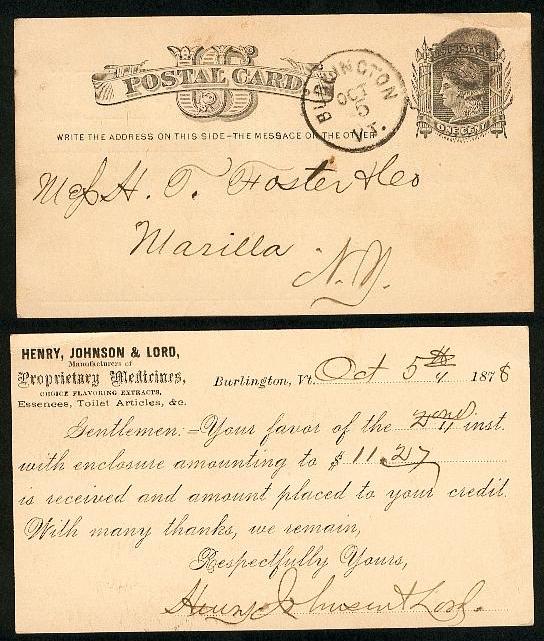 US
POSTAL CARD
BURLINGTON
OCT
5
VT.
U.S. POSTAGE
ONE CENT
WRITE THE ADDRESS ON THIS SIDE-THE MESSAGE ON THE OTHER
H. T. Foster & Co
Marilla
N.Y.
HENRY, JOHNSON & LORD,
Manufacturers of
Proprietary Medicines,
CHOICE FLAVORING EXTRACTS,
Essences, Toilet Articles, &c.
Burlington, Vt. Oct 5th 1878
Gentlemen:-Your favor of the 2nd inst.
with enclosure amounting to $ 11.27
is received and amount placed to your credit.
With many thanks, we remain,
Respectfully Yours,
Henry Johnson & Lord.